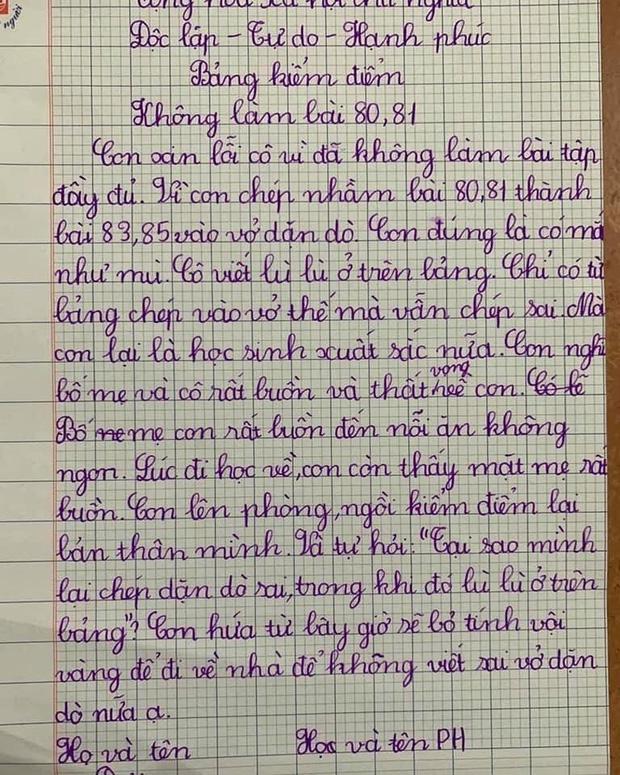 người
cộng hòa xã hội chủ nghĩa
Độc lập - Tự do - Hạnh phúc
Bảng kiểm điểm
Không làm bài 80,81
Con xin lỗi cô vì đã không làm bài tập
đầy đủ. Vì con chép nhầm bài 80,81 thành
bài 83,85 vào vở dặn dò. Con đúng là có mắ
như mù. Cô viết lù lù ở trên bảng. Chỉ có từ
bảng chép vào vở thế mà vẫn chép sai. Mà
con lại là học sinh xuất sắc nữa. Con nghĩ
bố mẹ và cô rất buồn và thất vọng về con. Có lẽ
Bố me mẹ con rất buồn đến nỗi ăn không
ngon. Lúc đi học về, con còn thấy mặt mẹ rất
buồn. Con lên phòng, ngồi kiểm điểm lại
bản thân mình. Và tự hỏi: "Tại sao mình
lại chép dặn dò sai, trong khi đó lù lù ở trên
bảng"? Con hứa từ bây giờ sẽ bỏ tính vội
vàng để đi về nhà để không viết sai vở dặn
dò nữa ạ.
Họ và tên Học và tên PH